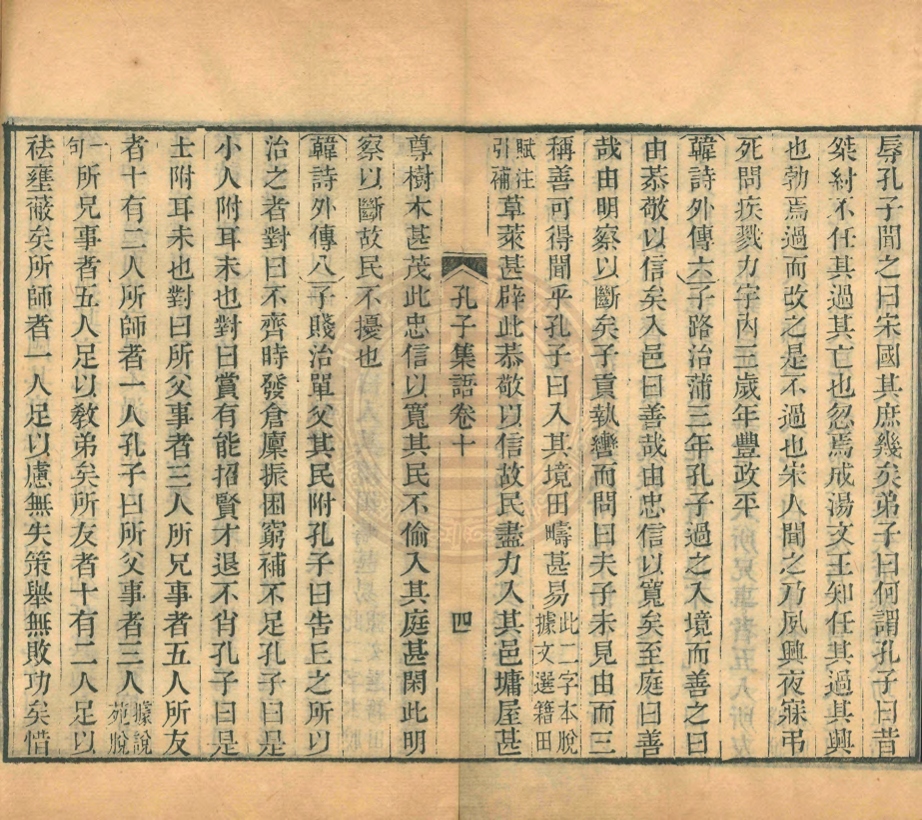 辱孔子聞之曰宋國其庶幾矣弟子曰何謂孔子曰昔
桀紂不任其過其亡也忽焉成湯文王知任其過其興
也勃焉過而改之是不過也宋人聞之乃夙興夜寐弔
死問疾戮力宇內三歲年豐政平
韓詩外傳六子路治蒲三年孔子過之入境而善之曰
由恭敬以信矣入邑曰善哉由忠信以寬矣至庭曰善
哉由明察以斷矣子貢執轡而問曰夫子未見由而三
稱善可得聞乎孔子曰入其境田疇甚易此二字本脫據文選籍田
賦注引補草萊甚辟此恭敬以信故民盡力入其邑墉屋甚
孔子集語卷十 四
尊樹木甚茂此忠信以寬其民不偷入其庭甚閑此明
察以斷故民不擾也
韓詩外傳八子賤治單父其民附孔子曰告丘之所以
治之者對曰不齊時發倉廩振困窮補不足孔子曰是
小人附耳未也對曰賞有能招賢才退不肖孔子曰是
士附耳未也對曰所父事者三人所兄事者五人所友
者十有二人所師者一人孔子曰所父事者三人據說苑脫
一句所兄事者五人足以教弟矣所友者十有二人足以
祛壅蔽矣所師者一人足以慮無失策舉無敗功矣惜